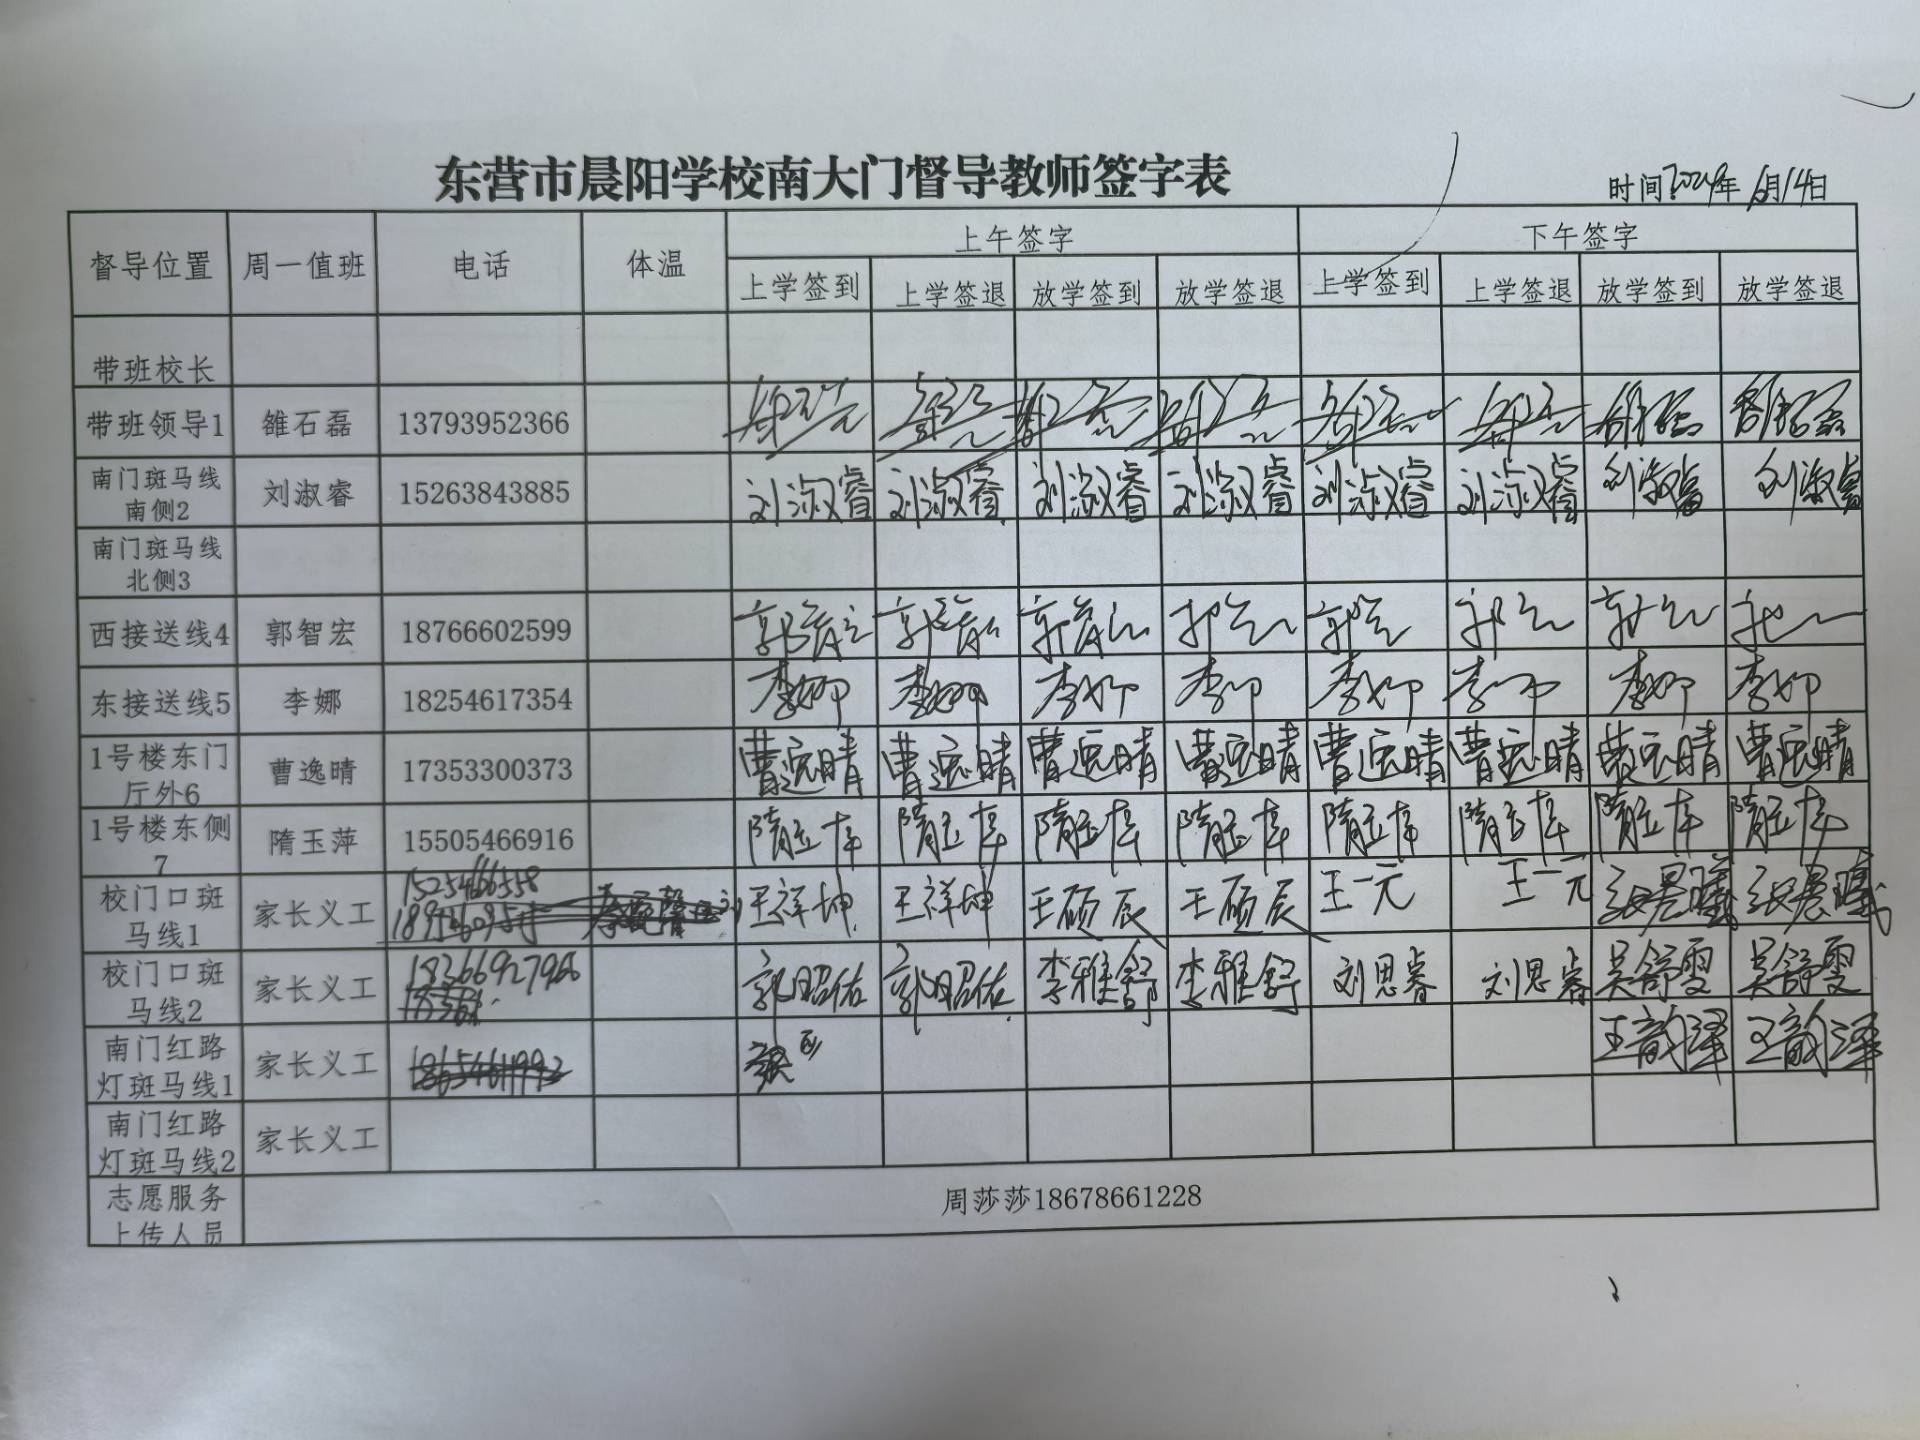 东营市晨阳学校南大门督导教师签字表
时间2024年6月14日
督导位置 周一值班 电话 体温 上午签字 下午签字
上学签到 上学签退 放学签到 放学签退 上学签到 上学签退 放学签到 放学签退
带班校长
带班领导1 雒石磊 13793952366
南门斑马线
南侧2 刘淑睿 15263843885 刘淑睿 刘淑睿 刘淑睿 刘淑睿 刘淑睿 刘淑睿 刘淑睿 刘淑睿
南门斑马线
北侧3
西接送线4 郭智宏 18766602599
东接送线5 李娜 18254617354 李娜 李娜 李娜 李娜 李娜 李娜 李娜 李娜
1号楼东门
厅外6 曹逸晴 17353300373 曹逸晴 曹逸晴 曹逸晴 曹逸晴 曹逸晴 曹逸晴 曹逸晴 曹逸晴
1号楼东侧
7 隋玉萍 15505466916 隋玉萍 隋玉萍 隋玉萍 隋玉萍 隋玉萍 隋玉萍 隋玉萍 隋玉萍
校门口斑
马线1 家长义工 王祥坤 王祥坤 王硕辰 王硕辰 王一元 王一元
校门口斑
马线2 家长义工 18366927966 郭昭佑 郭昭佑 李雅舒 李雅舒 刘思睿 刘思睿 吴舒雯 吴舒雯
南门红路
灯斑马线1 家长义工 王韵泽 王韵泽
南门红路
灯斑马线2 家长义工
志愿服务
上传人员 周莎莎18678661228